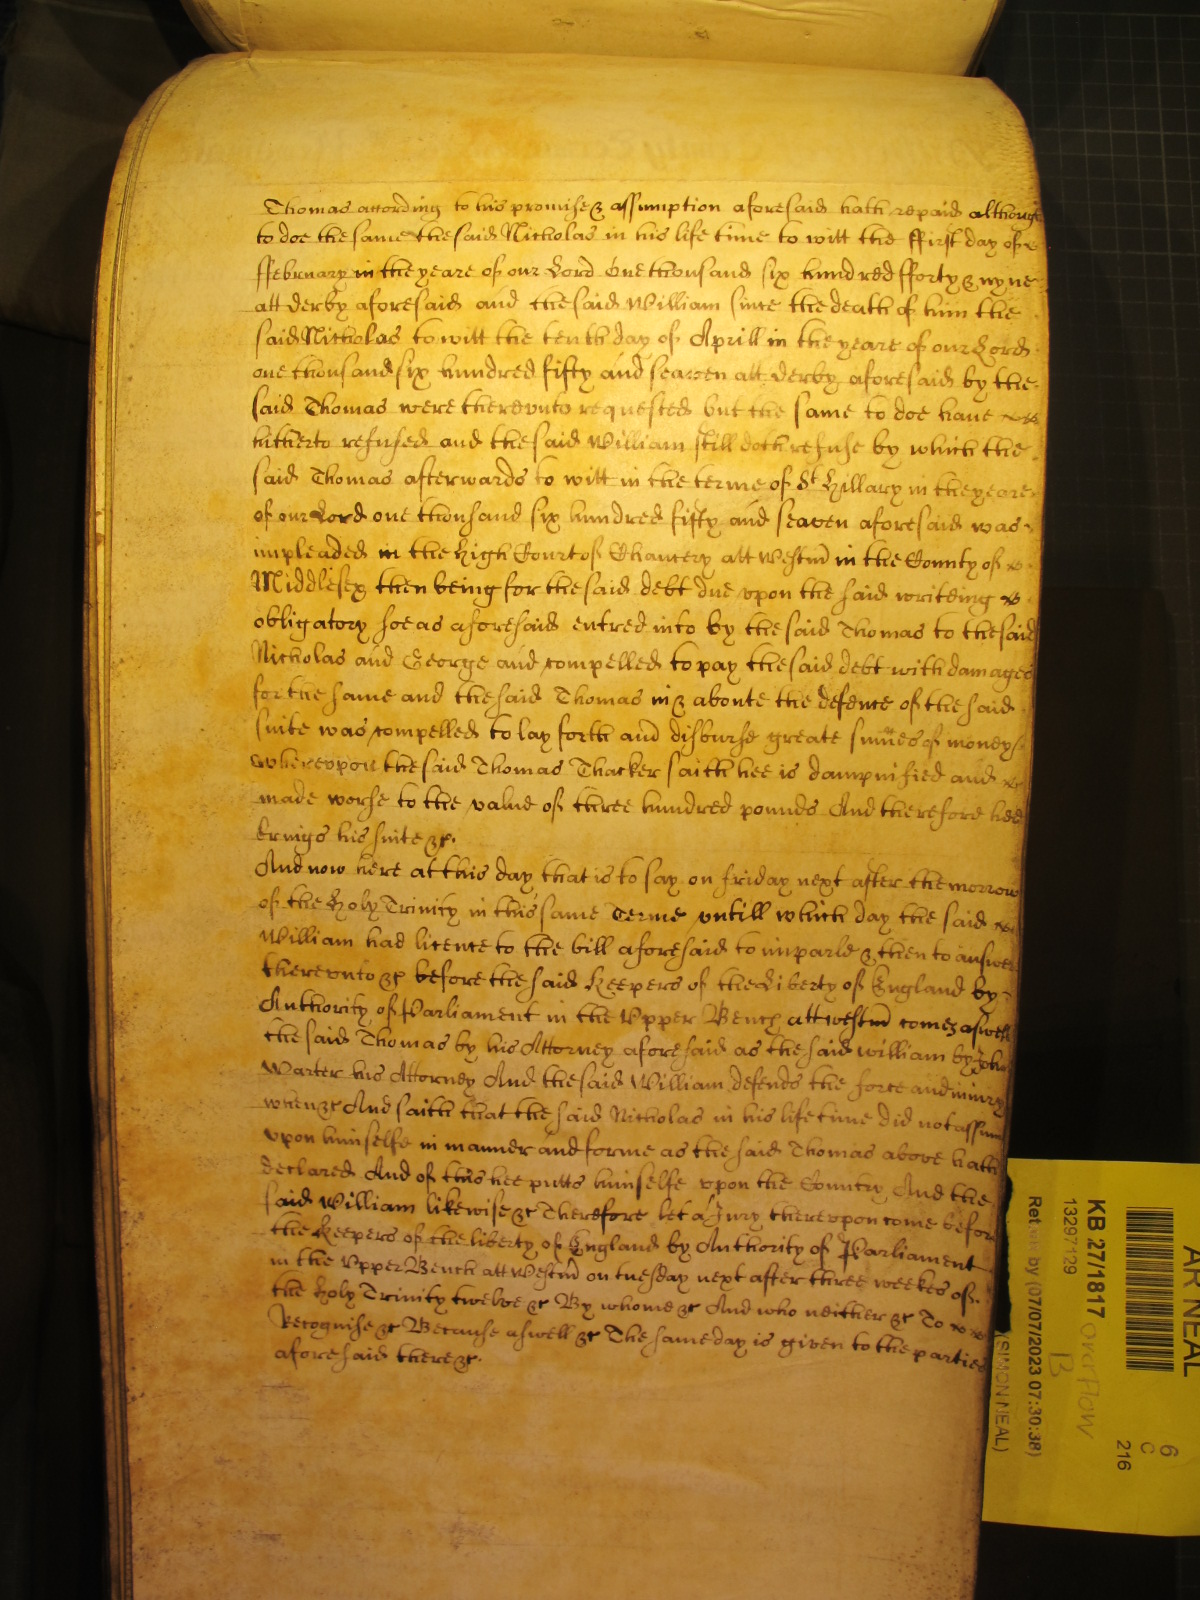 Thomas according to his promise & assumption aforesaid hath repaid although
to doe the same the said Nicholas in his life time to witt the ffirst day of
ffebruary in the yeare of our Lord one thousand six hundred fforty & nyne
att derby aforesaid and the said William since the death of him the
said Nicholas to witt the tenth day of Aprill in the yeare of our Lord
one thousand six hundred fifty and seaven att derby aforesaid by the
said Thomas were therevnto requested but the same to doe haue
hitherto refused and the said William still doth refuse by which the
said Thomas afterwards to witt in the terme of St Hillary in the yeare
of our Lord one thousand six hundred fifty and seaven aforesaid was
impleaded in the High Court of Chancery att Westm in the County of
Middlesex then being for the said debt due vpon the said writeing
obligatory soe as aforesaid entred into by the said Thomas to the said
Nicholas and George and compelled to pay the said debt with damages
for the same and the said Thomas in & aboute the defence of the said
suite was compelled to lay forth and disburse greate summes of money
wherevpon the said Thomas Thacker saith hee is dampnified and
made worse to the value of three hundred pounds And therefore hee
brings his suite &c.
And now here at this day that is to say on friday next after the morrow
of the Holy Trinity in this same Terme vntill which day the said
William had licence to the bill aforesaid to imparle & then to answer
therevnto &c before the said Keepers of the Liberty of England by
Authority of Parliament in the Vpper Bench att westm comes aswell
the said Thomas by his Attorney aforesaid as the said william by John
Warter his Attorney And the said William defends the force and iniury
when &c And saith that the said Nicholas in his life time did not assume
vpon himselfe in manner and forme as the said Thomas above hath
declared And of this hee putts himselfe vpon the Country And the
said William likewise &c Therefore let a Jury therevpon come before
the Keepers of the liberty of England by Authority of Parliament
in the Vpper Bench att Westm on tuesday next after three weekes of
the Holy Trinity twelve &c By whome &c And who neither &c To
Recognise &c Because aswell &c The same day is given to the parties
aforesaid there &c.
AR NEAL
KB 27/1817 overflow
13297129
B
Ret by (07/07/2023 07:30:38)
(SIMON NEAL)
6
C
216